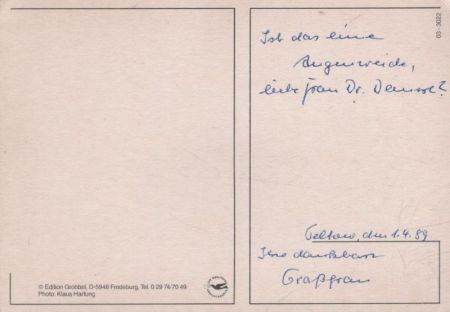 Ist das eine
Augenweide,
liebe Frau Dr.
Teltow, den 1.4.89
Ihre dankbare
© Edition Grobbel, D-5948 Fredeburg, Tel. 0 29 74/70 49
Photo: Klaus Hartung
03 - 3022